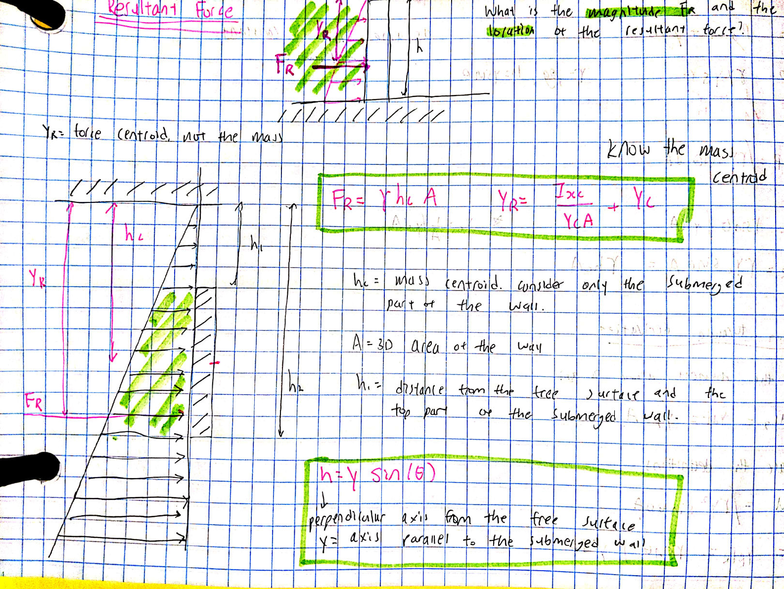 Resultant Force
What is the magnitude FR and the
location of the resultant force?
YR
h
FR
YR= force centroid, not the mass
know the mass
centroid
FR= γ hc A YR= Ixc / YcA + Yc
hc
h1
YR
hc = mass centroid. consider only the submerged
part of the wall.
A = 3D area of the wall
h2
h1= distance from the free surface and the
top part of the submerged wall.
FR
h=y sin(θ)
perpendicular axis from the free surface
y= axis parallel to the submerged wall